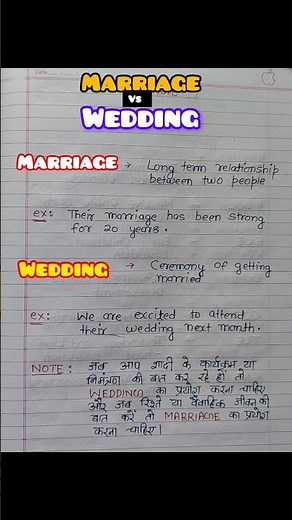 Date
MARRIAGE
VS
WEDDING
MARRIAGE → Long term relationship
between two people
ex: Their marriage has been strong
for 20 years.
WEDDING → Ceremony of getting
married
ex: We are excited to attend
their wedding next month.
NOTE: जब आप शादी के कार्यक्रम या
निमंत्रण की बात कर रहे हों तो
WEDDING का प्रयोग करना चाहिए
और जब रिश्ते या वैवाहिक जीवन की
बात करें तो MARRIAGE का प्रयोग
करना चाहिए।